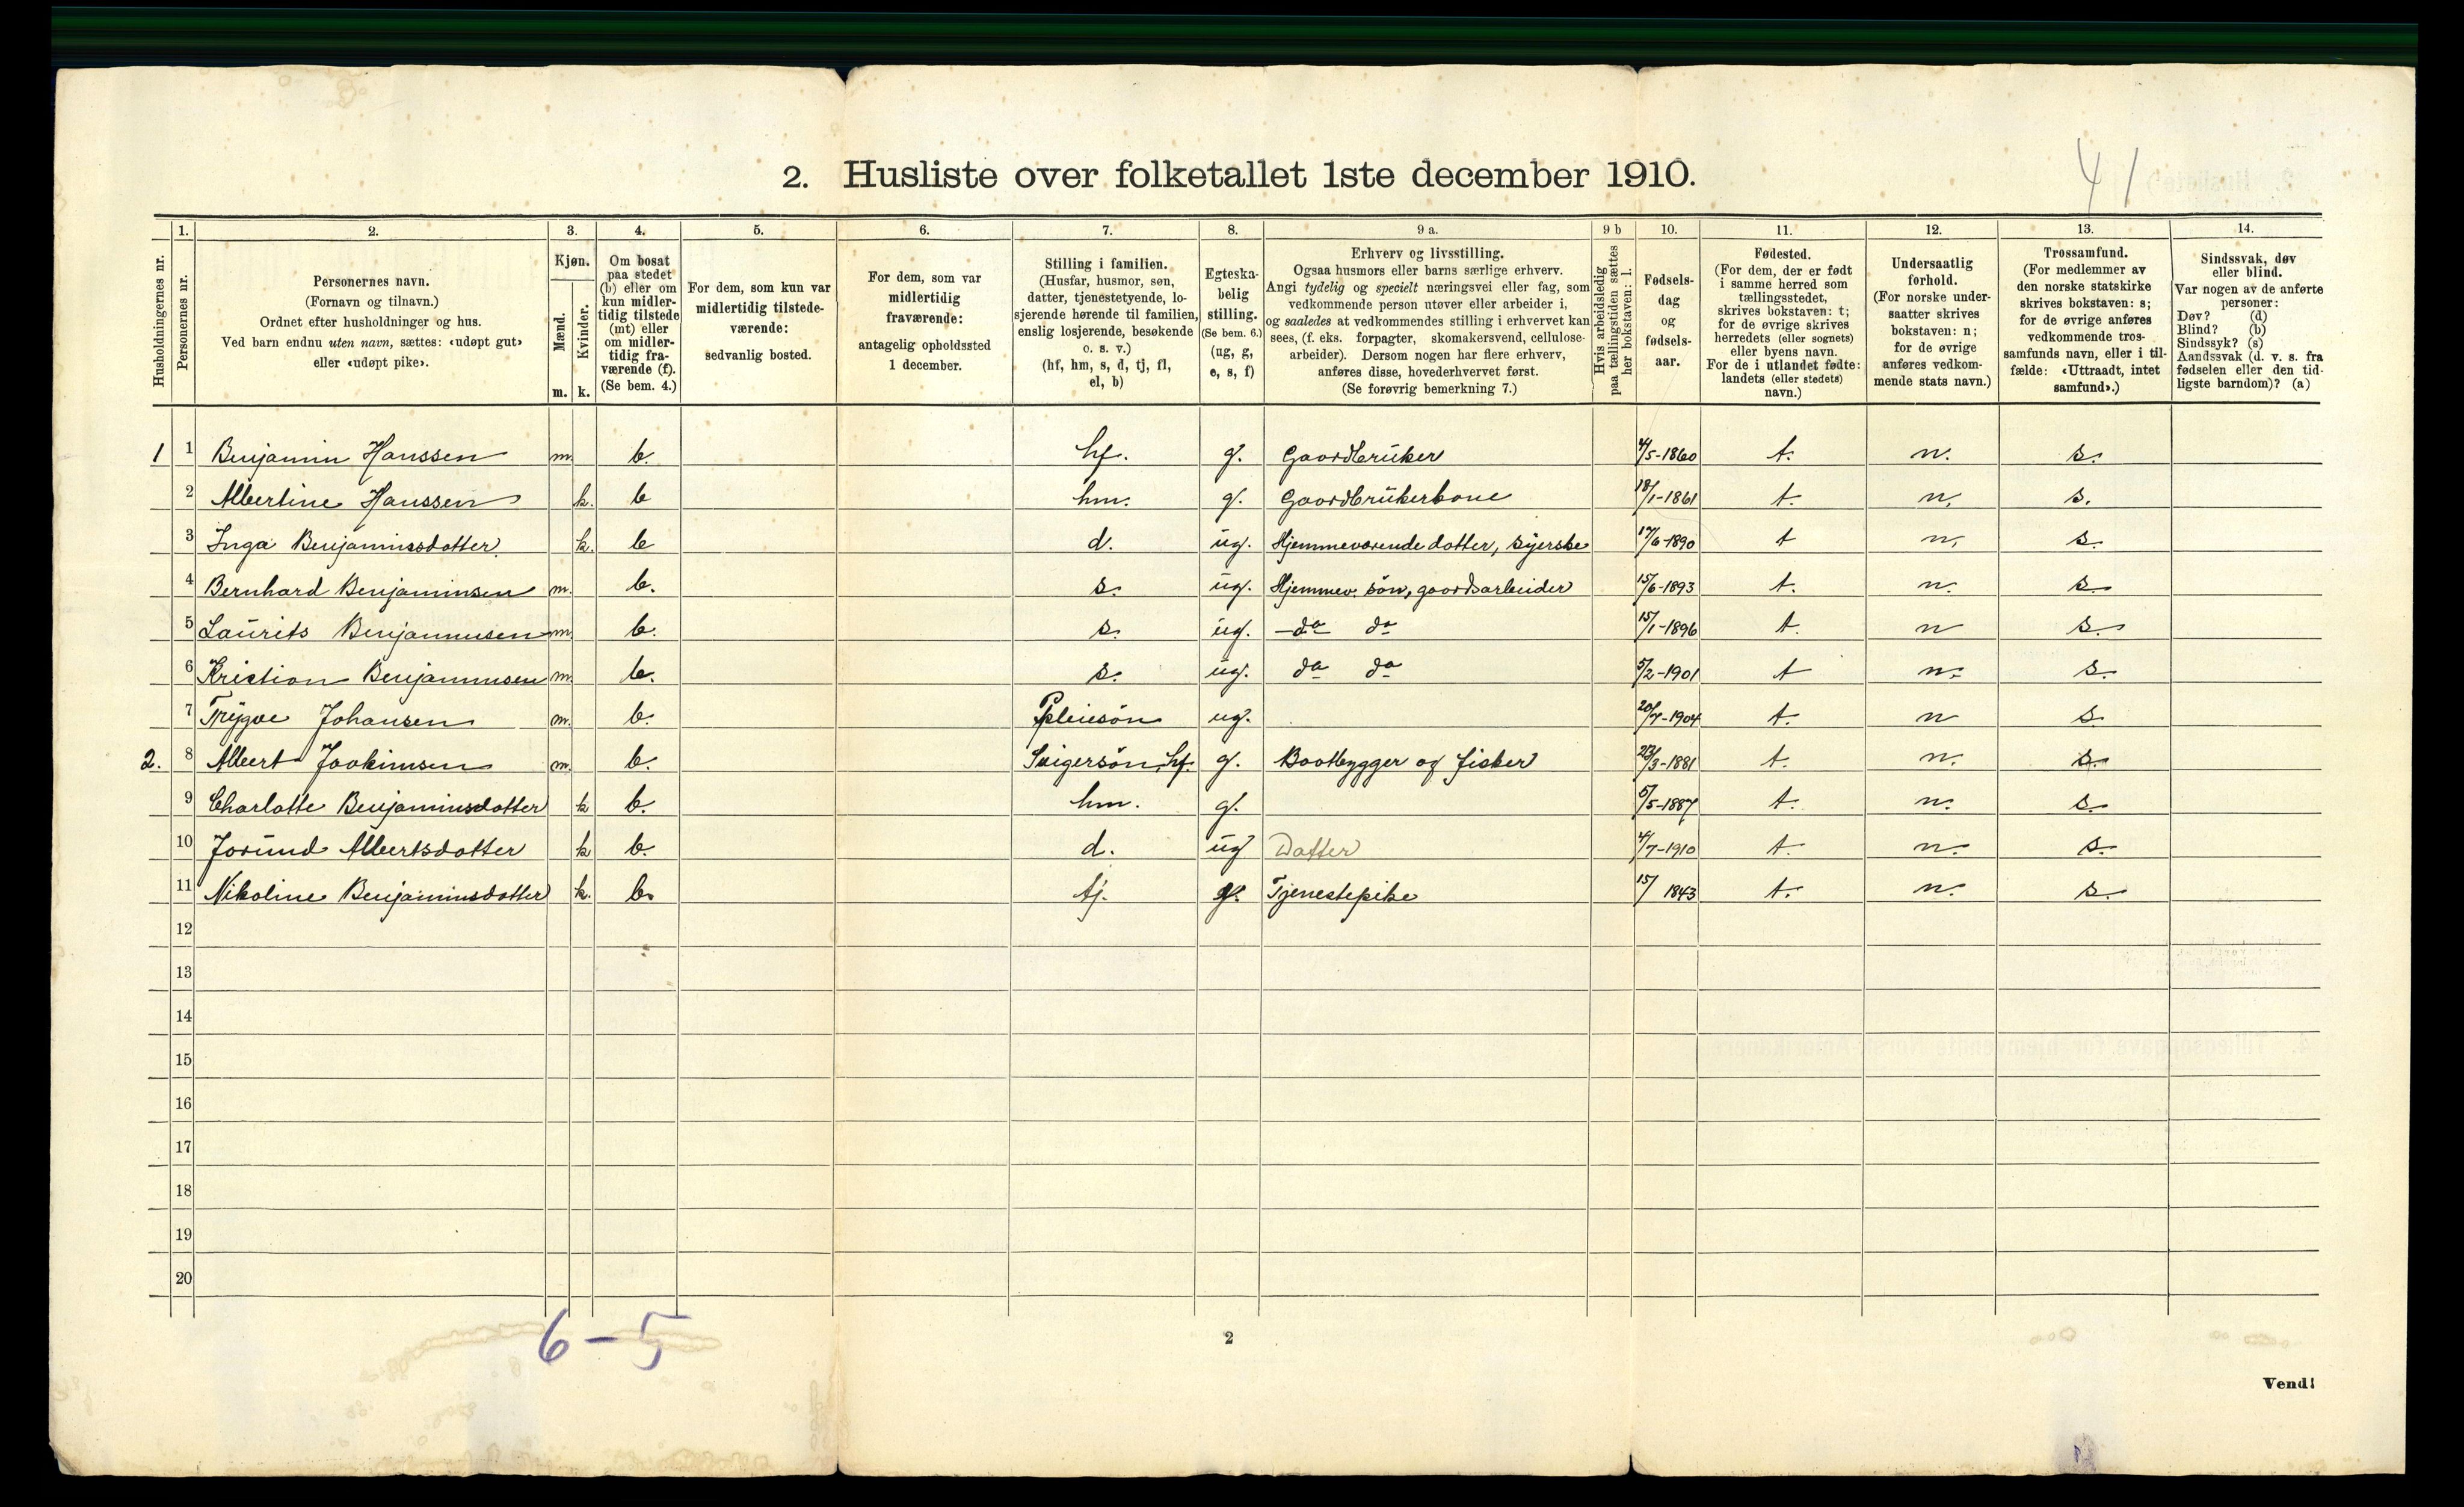 41
2. Husliste over folketallet 1ste december 1910.
Husholdningernes nr.
1. Personernes nr.
2. Personernes navn.
(Fornavn og tilnavn.)
Ordnet efter husholdninger og hus.
Ved barn endnu uten navn, sættes: «udøpt gut»
eller «udøpt pike».
3. Kjøn.
Mænd. m.
Kvinder. k.
4. Om bosat
paa stedet
(b) eller om
kun midler-
tidig tilstede
(mt) eller
om midler-
tidig fra-
værende (f).
(Se bem. 4.)
5. For dem, som kun var
midlertidig tilstede-
værende:
sedvanlig bosted.
6. For dem, som var
midlertidig
fraværende:
antagelig opholdssted
1 december.
7. Stilling i familien.
(Husfar, husmor, søn,
datter, tjenestetyende, lo-
sjerende hørende til familien,
enslig losjerende, besøkende
o. s. v.)
(hf, hm, s, d, tj, fl,
el, b)
8. Egteska-
belig
stilling.
(Se bem. 6.)
(ug, g,
e, s, f)
9 a. Erhverv og livsstilling.
Ogsaa husmors eller barns særlige erhverv.
Angi tydelig og specielt næringsvei eller fag, som
vedkommende person utøver eller arbeider i,
og saaledes at vedkommendes stilling i erhvervet kan
sees, (f. eks. forpagter, skomakersvend, cellulose-
arbeider). Dersom nogen har flere erhverv,
anføres disse, hovederhvervet først.
(Se forøvrig bemerkning 7.)
9 b Hvis arbeidsledig
paa tællingstiden sættes
her bokstaven: l.
10. Fødsels-
dag
og
fødsels-
aar.
11. Fødested.
(For dem, der er født
i samme herred som
tællingsstedet,
skrives bokstaven: t;
for de øvrige skrives
herredets (eller sognets)
eller byens navn.
For de i utlandet fødte:
landets (eller stedets)
navn.)
12. Undersaatlig
forhold.
(For norske under-
saatter skrives
bokstaven: n;
for de øvrige
anføres vedkom-
mende stats navn.)
13. Trossamfund.
(For medlemmer av
den norske statskirke
skrives bokstaven: s;
for de øvrige anføres
vedkommende tros-
samfunds navn, eller i til-
fælde: «Uttraadt, intet
samfund».)
14. Sindssvak, døv
eller blind.
Var nogen av de anførte
personer:
Døv? (d)
Blind? (b)
Sindssyk? (s)
Aandssvak (d. v. s. fra
fødselen eller den tid-
ligste barndom)? (a)
1 1 Benjamin Hanssen m. b. hf. g. Gaardbruker 4/5-1860 t. n. s.
2 Albertine Hanssen k. b hm. g. Gaardbrukerkone 18/1-1861 t. n. s.
3 Inga Benjaminsdotter k. b d. ug. Hjemmeværende dotter, syerske 17/6-1890 t n. s.
4 Bernhard Benjaminsen m. b. s. ug. Hjemmev. søn, gaardsarbeider 15/6-1893 t. n. s.
5 Laurits Benjaminsen m. b. s. ug. -do do 15/1-1896 t. n s.
6 Kristian Benjaminsen m. b. s. ug. do do 5/2-1901 t n. s.
7 Trygve Johansen m. b. Pleiesøn ug. 20/7-1904 t. n s.
2. 8 Albert Joakimsen m. b. Svigersøn, hf. g. Baatbygger og fisker 23/3-1881 t. n. s.
9 Charlotte Benjaminsdotter k b. hm. g. 5/5-1887 t. n. s.
10 Jorund Albertsdotter k b. d. ug Datter 4/7-1910 t. n. s.
11 Nikoline Benjaminsdotter k. b. tj. g. Tjenestepike 15/ 1843 t. n. s.
12
13
14
15
16
17
18
19
20
6-5
2
Vend!